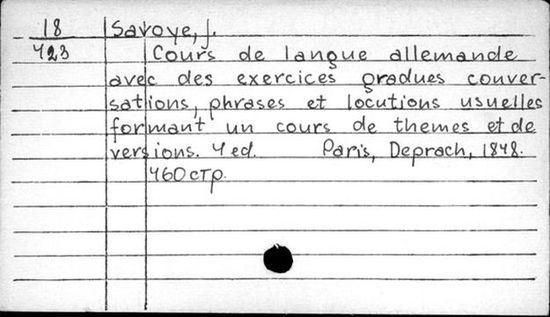 18 Savoye, J.
423 Cours de langue allemande
avec des exercices gradues conver-
sations, phrases et locutions usuelles
formant un cours de themes et de
versions. 4 ed. Paris, Deprach, 1848.
460 стр.